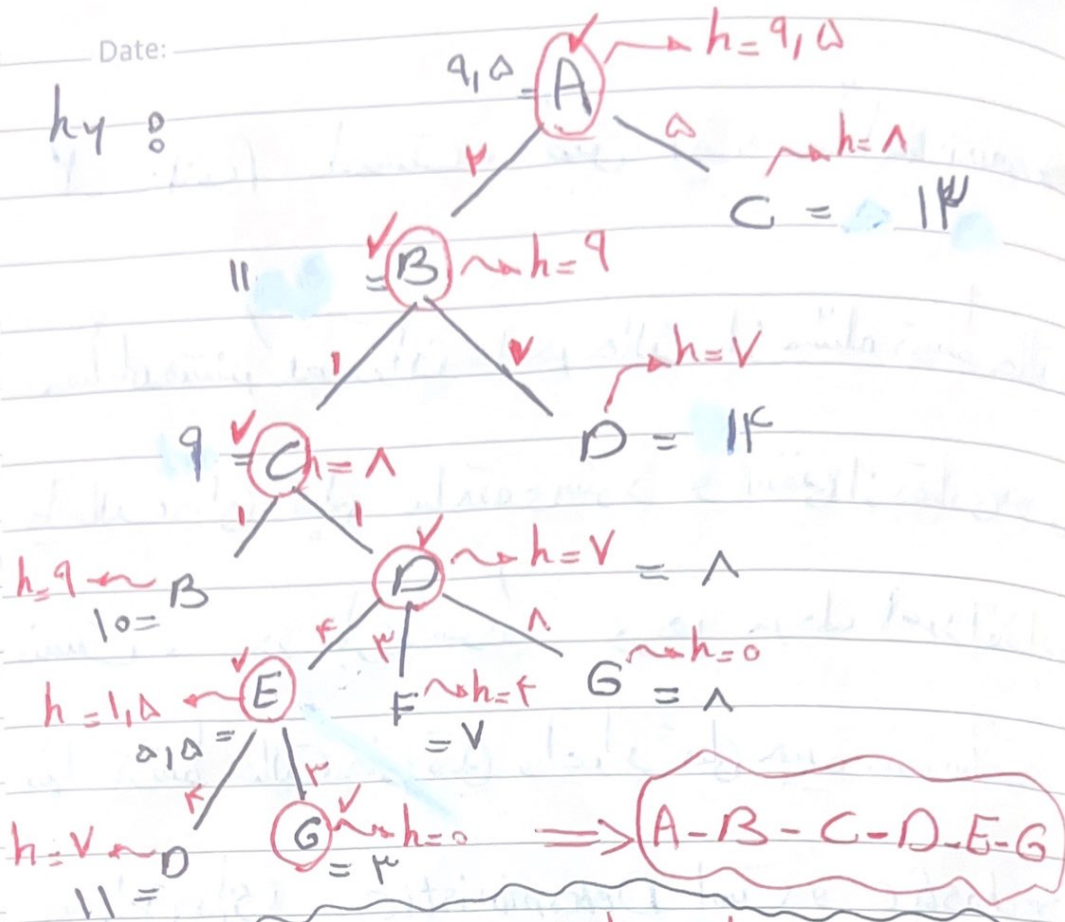 Date:
h = ۹,۵
۹,۵ = A
h۲ :
۲ ۵
h = ۸
C = ۱۳
۱۱ = B h = ۹
۱ ۷
h = ۷
D = ۱۴
۹ = C h = ۸
۱ ۱
h = ۹ B
۱۰ =
D h = ۷ = ۸
۴ ۳ ۸
h = ۱,۵ E
۵,۵ =
F h = ۴
= ۷
G h = ۰
= ۸
۴ ۳
h = ۷ D
۱۱ =
G h = ۰
= ۳
⇒ A - B - C - D - E - G